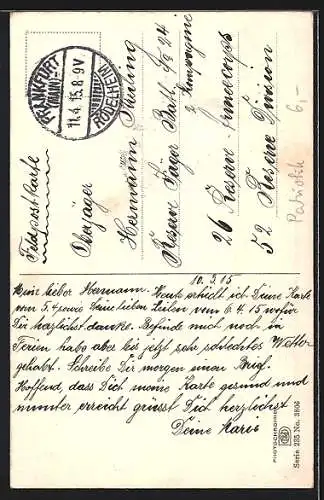 FRANKFURT
(MAIN)-
11.4.15.8-9V
RÖDELHEIM
Feldpostkarte
Oberjäger
Hermann
Reserve Jäger Batl. No 24
2 Kompagnie
26 Reserve Armeecorps
52 Reserve Division
Patriotik 6,-
10.4.15
Mein lieber Hermann. Heute erhielt ich Deine Karte
vom 5.4 sowie Deine lieben Zeilen vom 6.4.15 wofür
Dir herzlichst danke. Befinde mich noch in
Ferien habe aber bis jetzt sehr schlechtes Wetter
gehabt. Schreibe Dir morgen einen Brief.
Hoffend, dass Dich meine Karte gesund und
munter erreicht grüsst Dich herzlichst
Deine
PHOTOCHROMIE
Serie 235 No. 3806